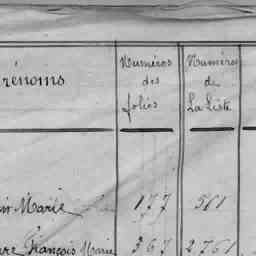 rénoms
Numéros
des
folios
Numéros
de
La Liste
Marie 177 511
François Marie 367 2761